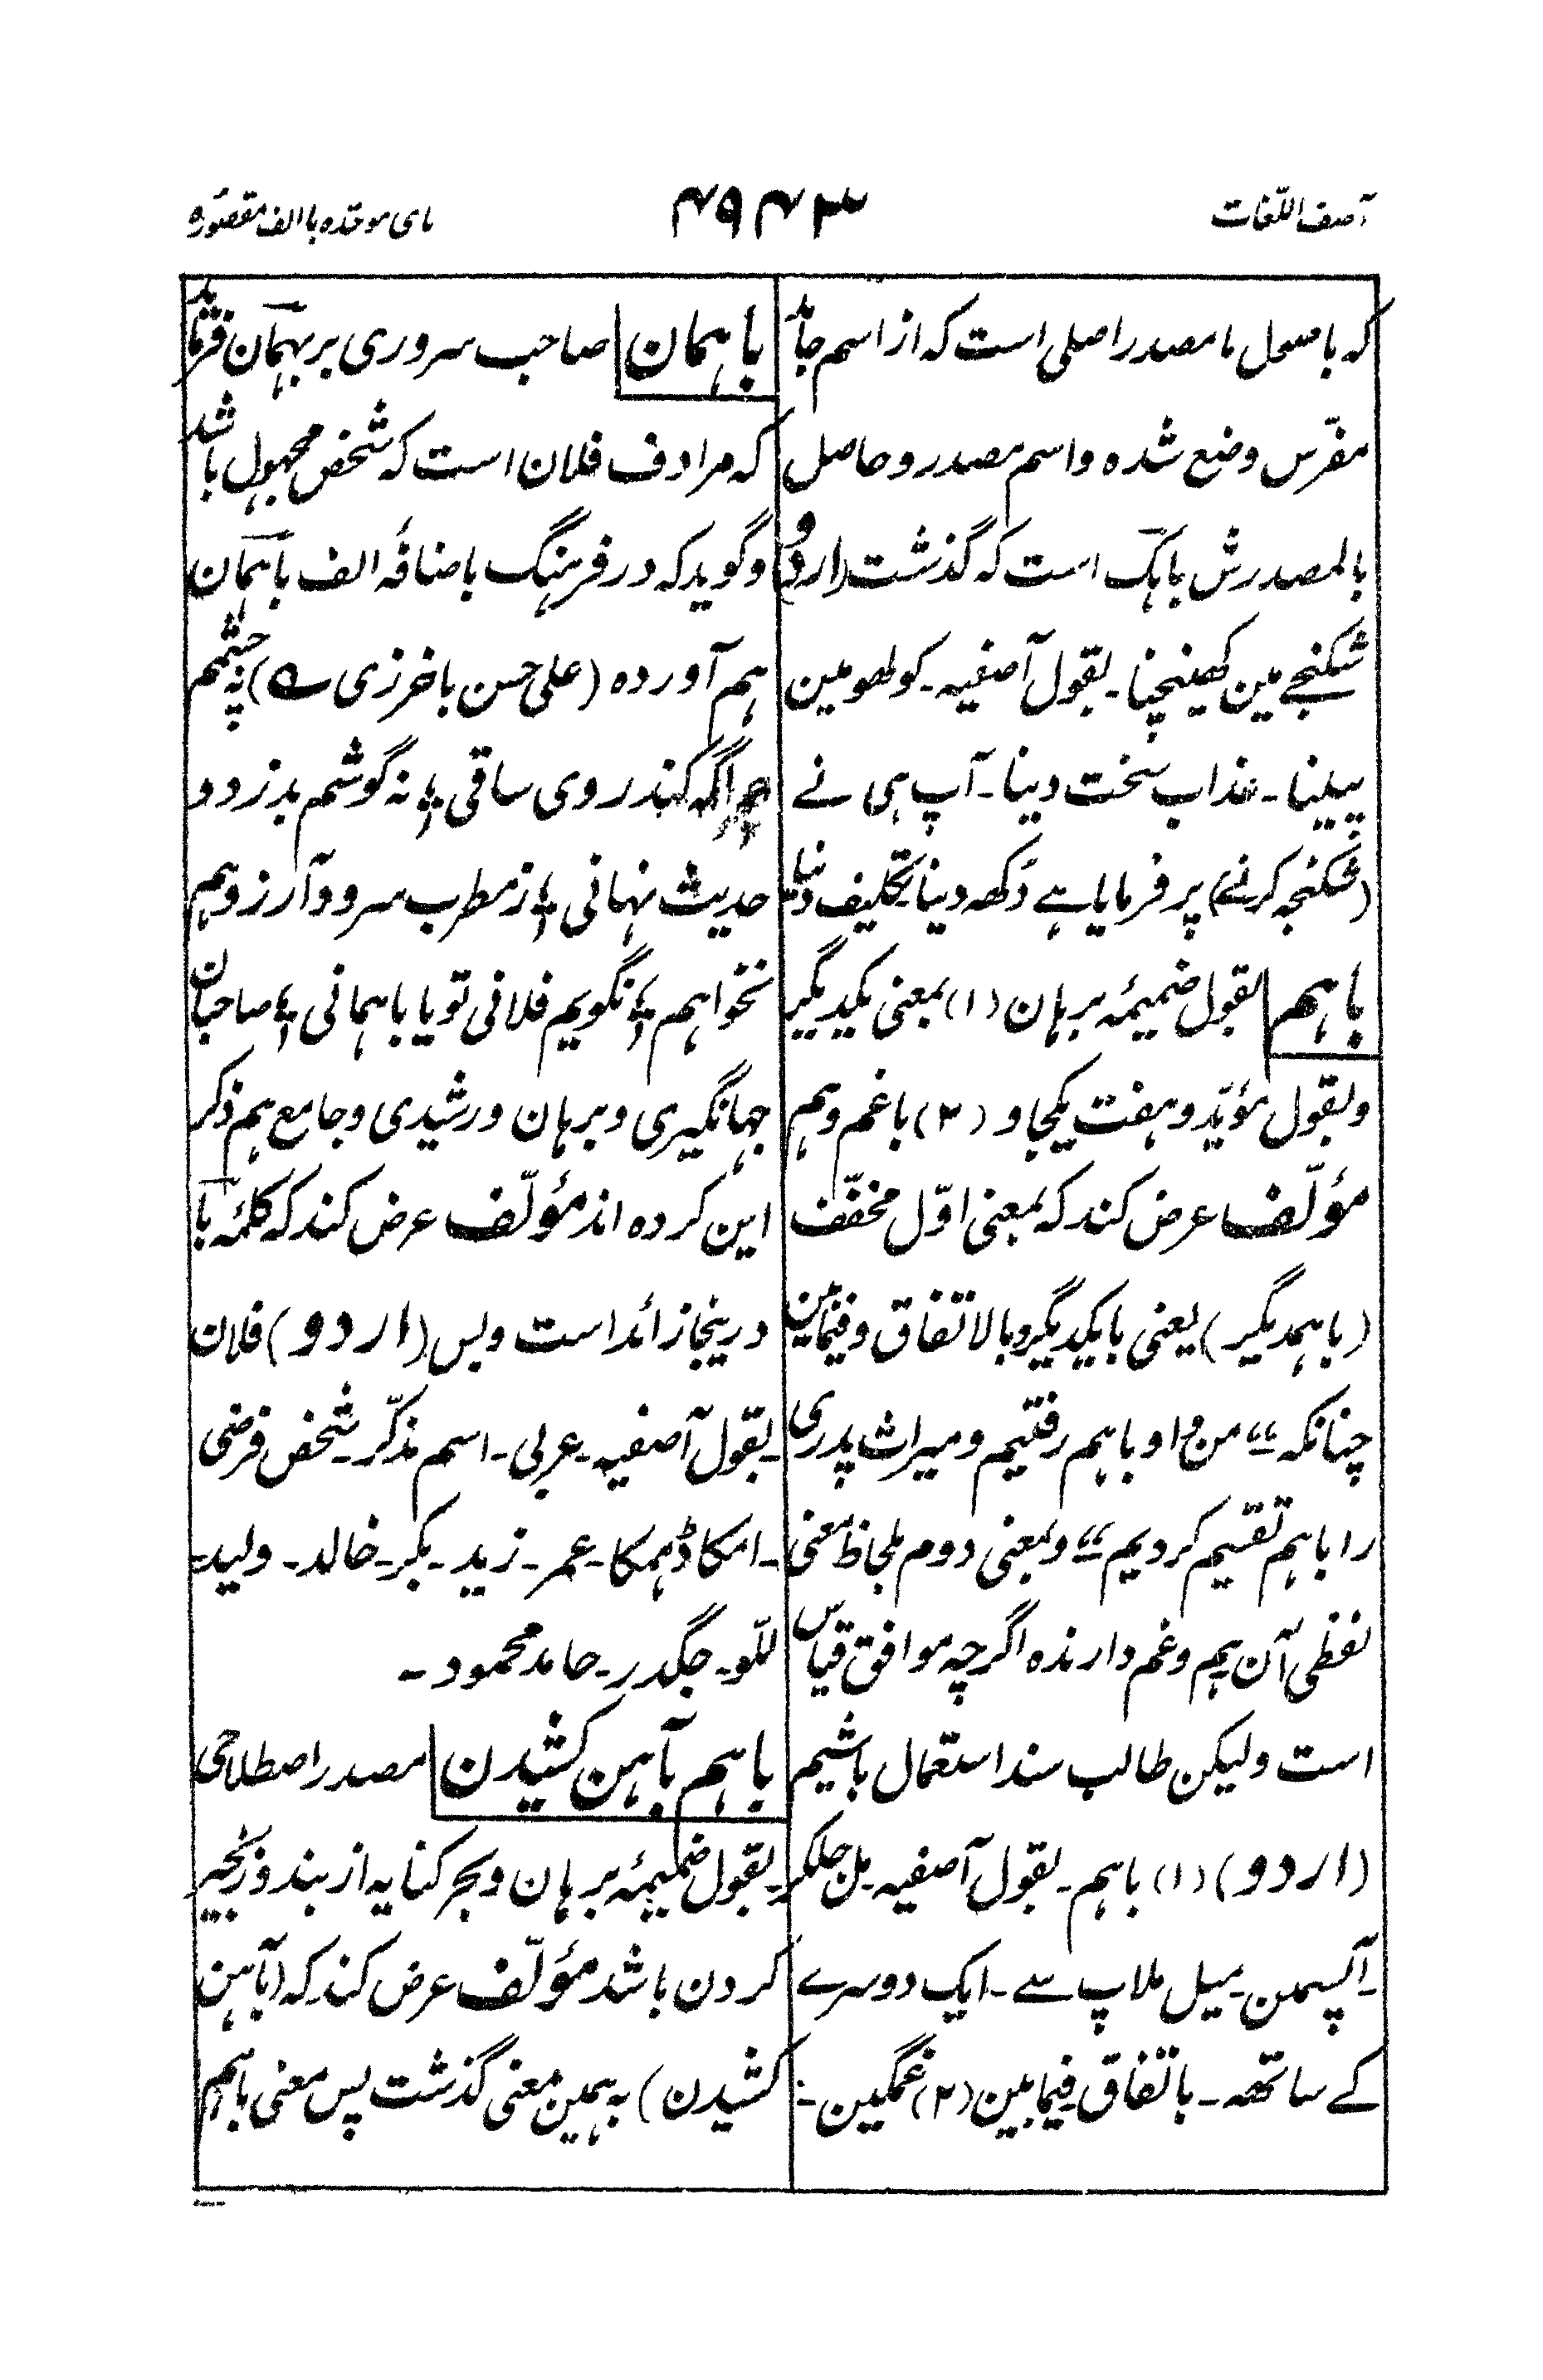 آصف اللّغات
۴۹۴۳
بای موحّدہ با الف مقصورہ
کہ با اصل ما مصدر اصلی است کہ از اسم جامد
مفرّس وضع شدہ و اسم مصدر و حاصل
بالمصدرش باہک است کہ گذشت (اردو)
شکنجے مین کھینچنا ۔ بقول آصفیہ ۔ کولھو مین
پیلنا ۔ عذاب سخت دینا ۔ آپ ہی نے
(شکنجہ کرنے) پر فرمایا ہے دُکھ دینا تکلیف دینا
باہم بقول ضمیمۂ برہان (۱) بمعنی یکدیگر
و بقول مؤیّد و ہفت یکجا و (۲) با غم و ہم
مؤلّف عرض کند کہ بمعنی اوّل مخفّف
(باہمدیگر) یعنی بایکدیگر و بالاتفاق و فیمابین
چنانکہ ‟من و او باہم رفتیم و میراث پدری
را باہم تقسیم کردیم” و بمعنی دوم بلحاظ معنی
لفظی آن ہم و غم دارندہ اگرچہ موافق قیاس
است ولیکن طالب سند استعمال باشیم
(اردو) (۱) باہم ۔ بقول آصفیہ ۔ مل جلکر
۔ آپسمین ۔ میل ملاپ سے ۔ ایک دوسرے
کے ساتھ ۔ باتفاق فیمابین (۲) غمگین ۔
باہمان صاحب سروری بر بہمان فرماید
کہ مرادف فلان است کہ شخص مجہول باشد
و گوید کہ در فرہنگ باضافۂ الف باہمان
ہم آوردہ (علی حسن باخرزی ؎) نہ چشمم
چراگہ کند روی ساقی ؛ نہ گوشم بدزدد
حدیث نہانی ؛ ز مطرب سرود آرزو ہم
نخواہم ؛ نگویم فلانی تو یا باہمانی ؛ صاحبان
جہانگیری و برہان و رشیدی و جامع ہم ذکر
این کردہ اند مؤلّف عرض کند کہ کلمۂ با
درینجا زائد است و بس (اردو) فلان
۔ بقول آصفیہ ۔ عربی ۔ اسم مذکّر ۔ شخص فرضی
۔ امکا ڈہمکا ۔ عمر ۔ زید ۔ بکر ۔ خالد ۔ ولید ۔
للّو ۔ جگدر ۔ حامد محمود ۔
باہم بآہن کشیدن مصدر اصطلاحی
۔ بقول ضمیمۂ برہان و بحر کنایہ از بند و زنجیر
کردن باشد مؤلّف عرض کند کہ (بآہن
کشیدن) بہ ہمین معنی گذشت پس معنی باہم